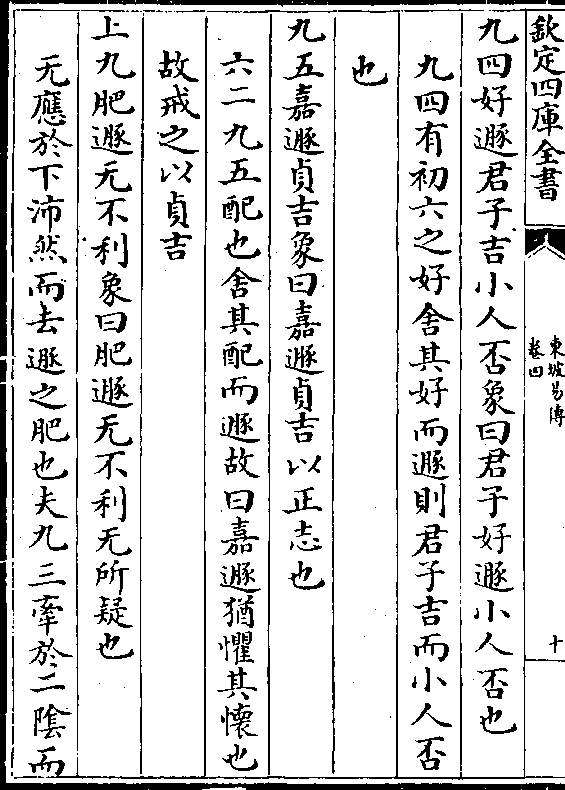 欽定四庫全書
東坡易傳
卷四
十
九四好遯君子吉小人否象曰君子好遯小人否也
九四有初六之好舍其好而遯則君子吉而小人否
也
九五嘉遯貞吉象曰嘉遯貞吉以正志也
六二九五配也舍其配而遯故曰嘉遯猶懼其懷也
故戒之以貞吉
上九肥遯无不利象曰肥遯无不利无所疑也
无應於下沛然而去遯之肥也夫九三牽於二陰而